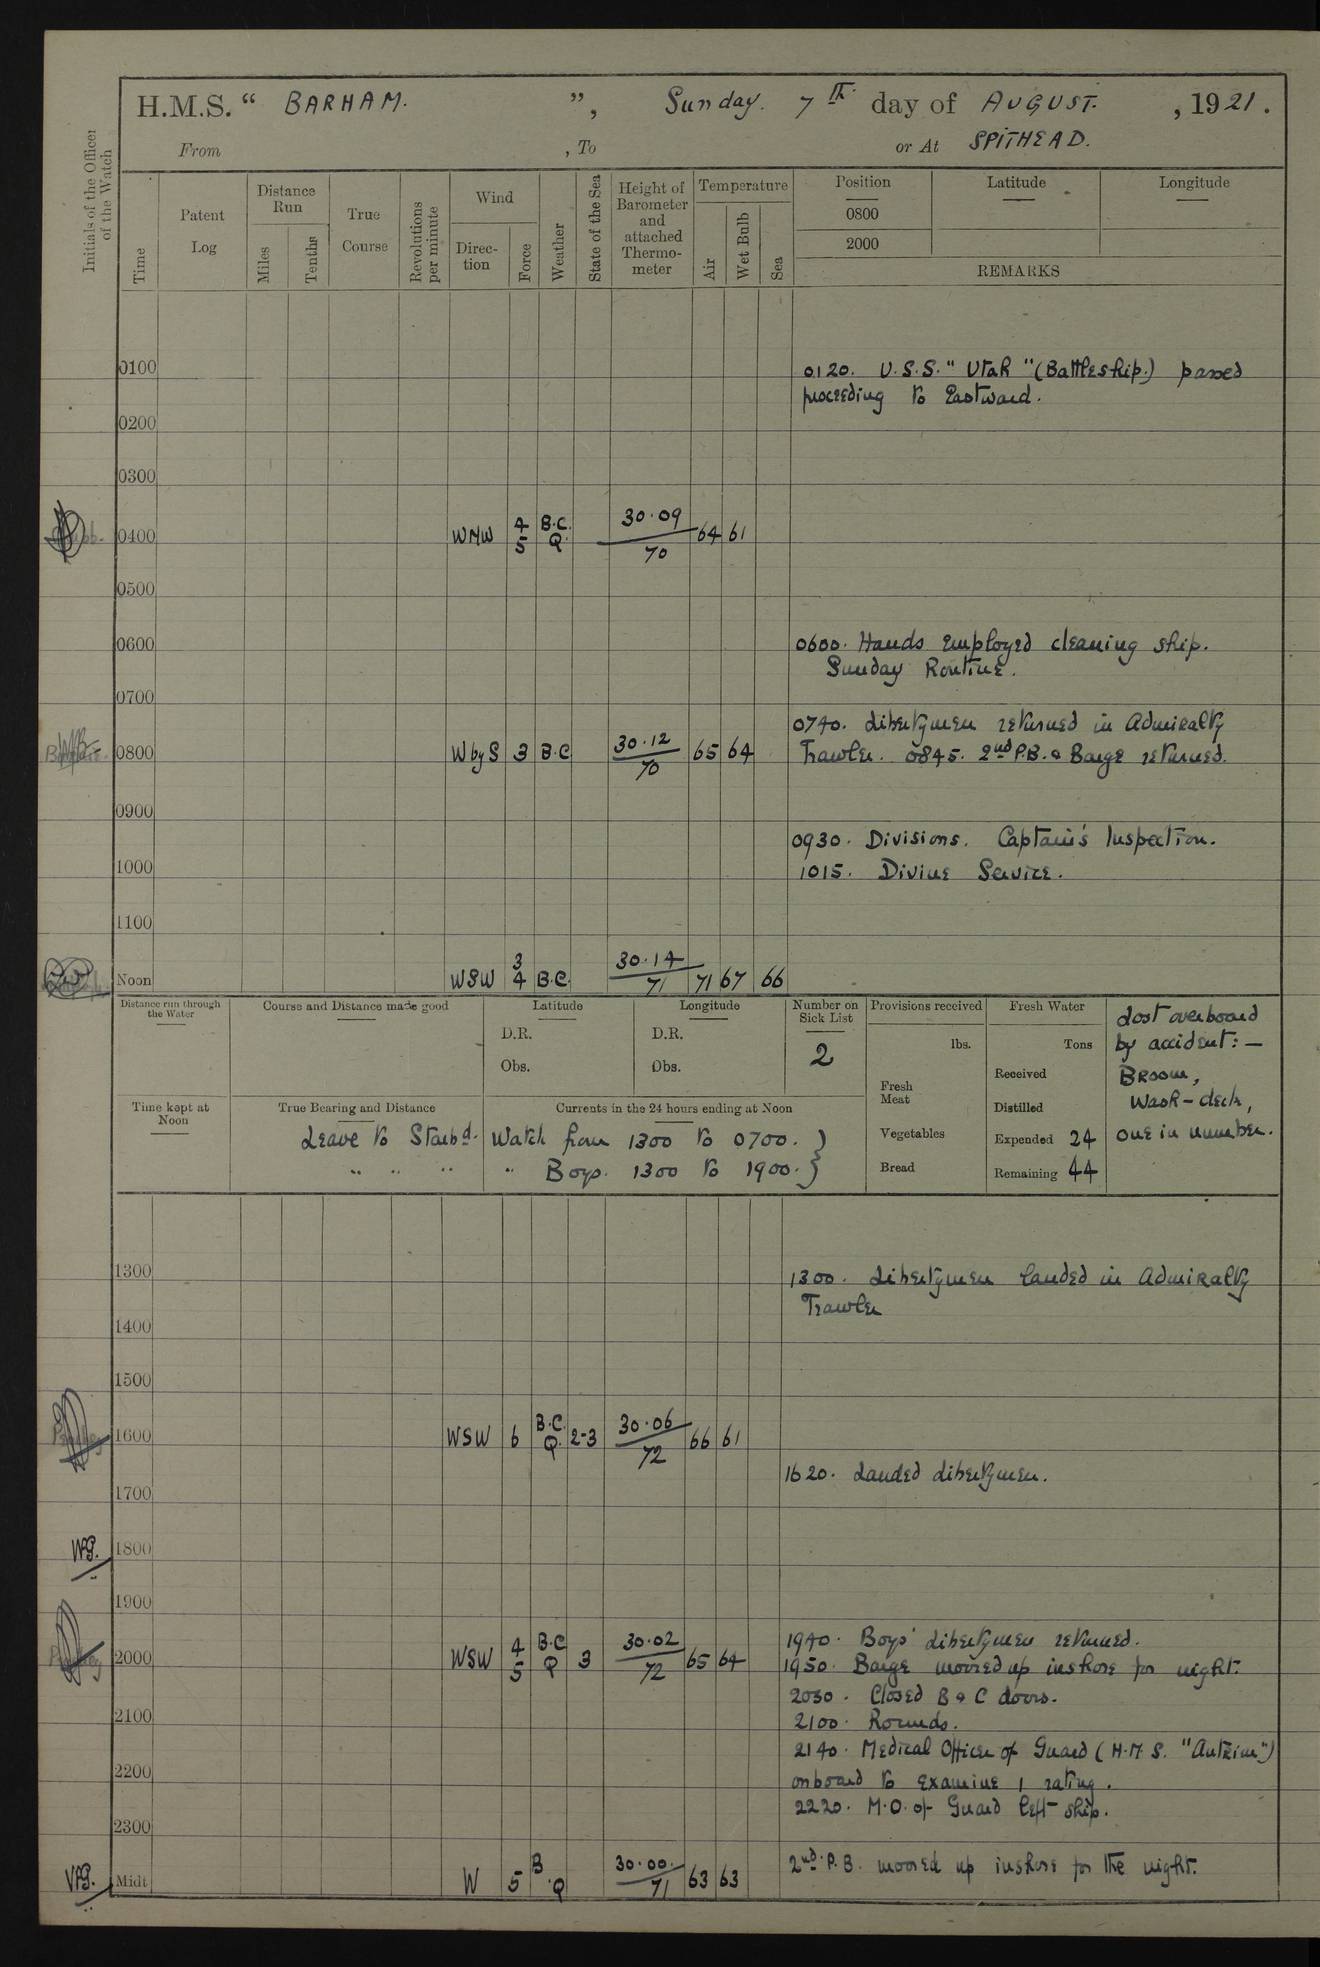 H.M.S. “ BARHAM. ”, Sunday. 7th day of AUGUST. , 1921.
From , To or At SPITHEAD.
Initials of the Officer of the Watch
Time
Patent Log
Distance Run
Miles
Tenths
True Course
Revolutions per minute
Wind
Direc-tion
Force
Weather
State of the Sea
Height of Barometer and attached Thermo-meter
Temperature
Air
Wet Bulb
Sea
Position
Latitude
Longitude
0800
2000
REMARKS
0100 0120. U.S.S. "Utah" (Battleship.) passed
proceeding to Eastward.
0200
0300
0400 WNW 4 5 B.C. Q. 30.09 70 64 61
0500
0600 0600. Hands employed cleaning ship.
Sunday Routine.
0700
0740. Libertymen returned in Admiralty
0800 W by S 3 B.C 30.12 70 65 64 Trawler. 0845. 2nd P.B. & Barge returned.
0900
0930. Divisions. Captain's Inspection.
1000 1015. Divine Service.
1100
Noon WSW 3 4 B.C. 30.14 71 71 67 66
Distance run through the Water
Course and Distance made good
Latitude
D.R.
Obs.
Longitude
D.R.
Obs.
Number on Sick List
2
Provisions received
lbs.
Fresh Meat
Vegetables
Bread
Fresh Water
Tons
Received
Distilled
Expended 24
Remaining 44
Lost overboard
by accident:—
Broom,
Wash-deck,
one in number.
Time kept at Noon
True Bearing and Distance
Currents in the 24 hours ending at Noon
Leave to Starbd. Watch from 1300 to 0700. }
" " " " Boys. 1300 to 1900. }
1300 1300. Libertymen landed in Admiralty
Trawler
1400
1500
1600 WSW 6 B.C. Q. 2-3 30.06 72 66 61
1620. Landed Libertymen.
1700
1800
1900
1940. Boys' Libertymen returned.
2000 WSW 4 5 B.C Q 3 30.02 72 65 64 1950. Barge moored up inshore for night.
2030. Closed B & C doors.
2100 2100. Rounds.
2140. Medical Officer of Guard (H.M.S. "Antrim")
2200 onboard to examine 1 rating.
2220. M.O. of Guard left ship.
2300
Midt W 5 B .Q 30.00. 71 63 63 2nd. P.B. moored up inshore for the night.